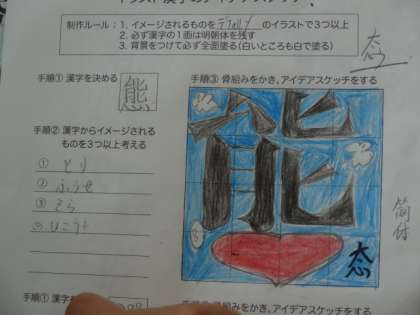 制作ルール：1. イメージされるものをデフォルメのイラストで3つ以上
2. 必ず漢字の1画は明朝体を残す
3. 背景をつけて必ず全面塗る（白いところも白で塗る）
手順① 漢字を決める
態
手順② 漢字からイメージされる
ものを3つ以上考える
① とり
②
③ そら
④ ひこうき
手順③ 骨組みをかき、アイデアスケッチをする
能
態
態
手順① 漢字を
骨組みをかき、アイデアスケッチをする